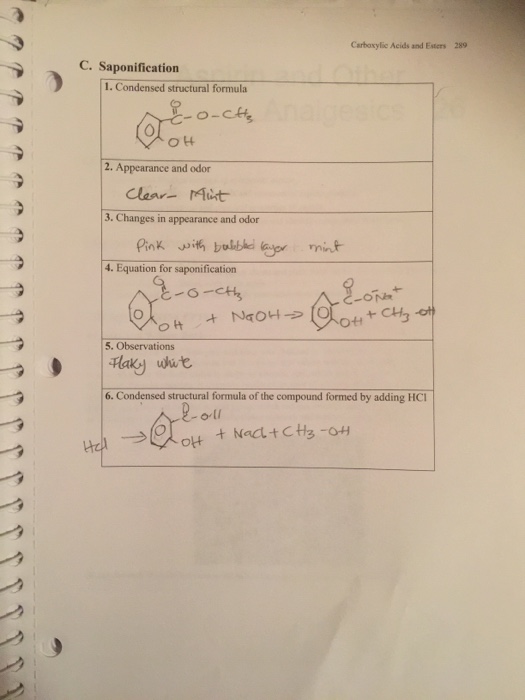 Carboxylic Acids and Esters 289
C. Saponification
1. Condensed structural formula
O
C-O-CH3
OH
2. Appearance and odor
Clear- Mint
3. Changes in appearance and odor
Pink with bubbled layer mint
4. Equation for saponification
O
C-O-CH3
OH + NaOH →
O
C-O-Na+
OH + CH3-OH
5. Observations
Flaky white
6. Condensed structural formula of the compound formed by adding HCl
C-OH
Hcl → OH + Nacl + CH3-OH